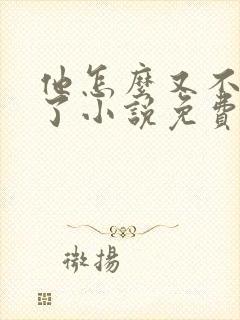 他怎麼又不
了小說免費
微揚